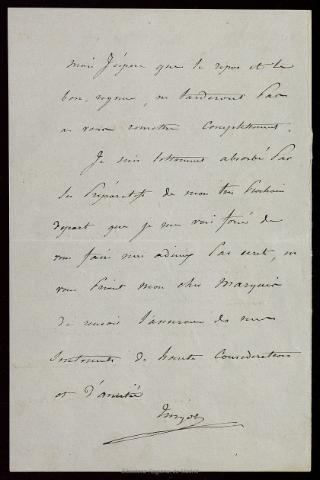 mais j'espère que le repos et le
bon régime, ne tarderont pas
a vous remettre complettement.
Je suis tellement absorbé par
les préparatifs de mon très prochain
départ que je me vois forcé de
vous faire mes adieux par écrit, en
vous priant mon cher Marquis
de recevoir l'assurance de mes
sentiments de haute considération
et d'amitié